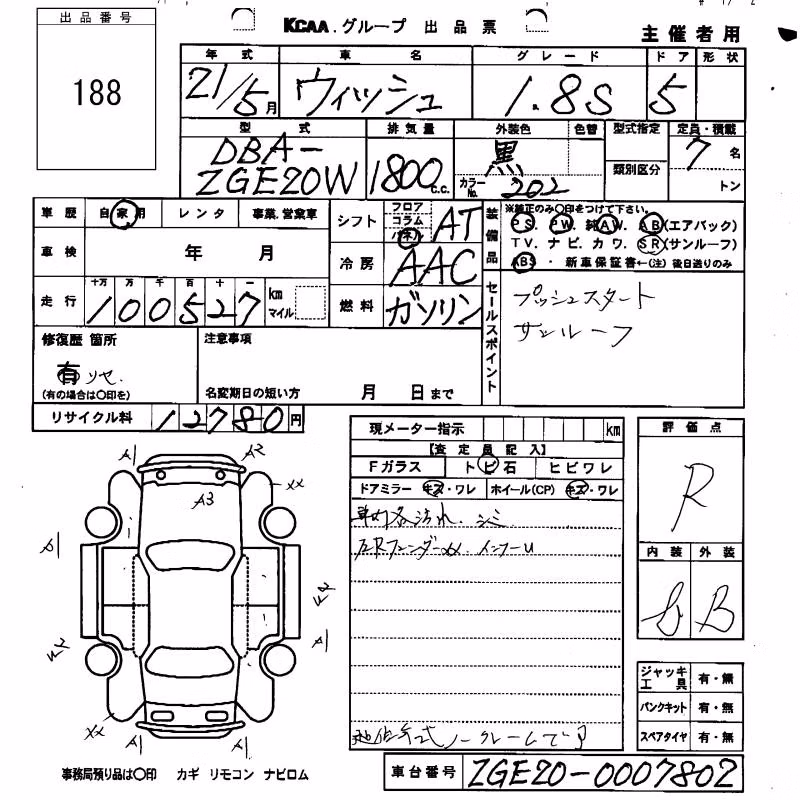 出品番号
188
KCAA.グループ 出品票
主催者用
年式 車名 グレード ドア 形状
21/5月 ウィッシュ 1.8S 5
型式 排気量 外装色 色替 型式指定 定員・積載
DBA-
ZGE20W 1800c.c. 黒 カラーNo. 202 類別区分 7名
トン
車歴 自家用 レンタ 事業.営業車
車検 年 月
走行 十万 万 千 百 十 一
100527 km マイル
シフト フロア コラム パネル AT
冷房 AAC
燃料 ガソリン
装備品
※純正のみ○印をつけて下さい。
PS. PW. 純AW. AB(エアバック)
TV. ナビ. カワ. SR(サンルーフ)
ABS・新車保証書←(注)後日送りのみ
セールスポイント
プッシュスタート
サンルーフ
修復歴 箇所
有 リヤ.
(有の場合は○印を)
注意事項
名変期日の短い方 月 日まで
リサイクル料 12780円
現メーター指示 km
【査定員記入】
Fガラス トビ石 ヒビワレ
ドアミラー キズ・ワレ ホイール(CP) キズ・ワレ
評価点
R
内装 外装
B
A1 A2
XX
A3
A1
A1
XX
ジャッキ工具 有・無
パンクキット 有・無
スペアタイヤ 有・無
事務局預り品は○印 カギ リモコン ナビロム
車台番号 ZGE20-0007802